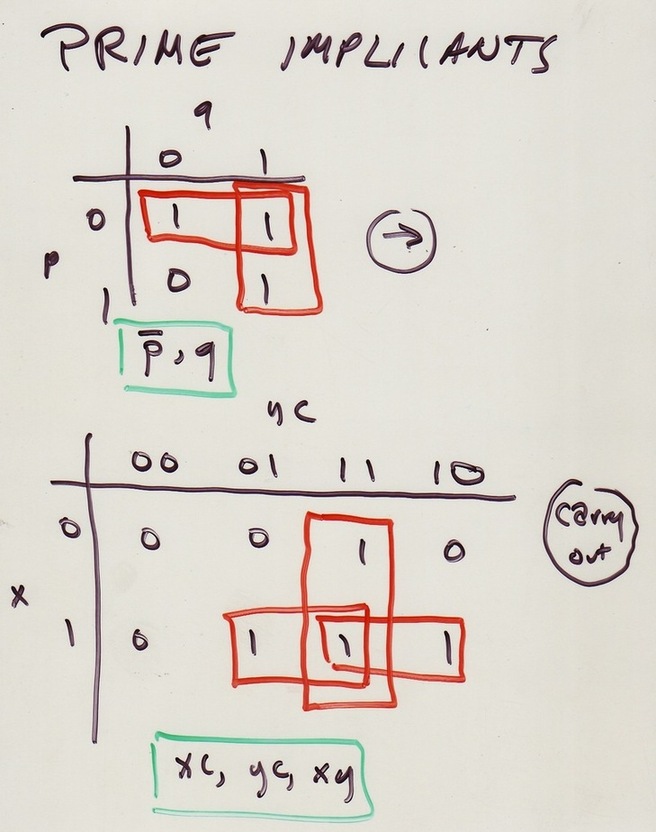 PRIME IMPLICANTS
q
0 1
0 1 1 →
p
1 0 1
p̅, q
yc
00 01 11 10
0 0 0 1 0 carry out
x
1 0 1 1 1
xc, yc, xy